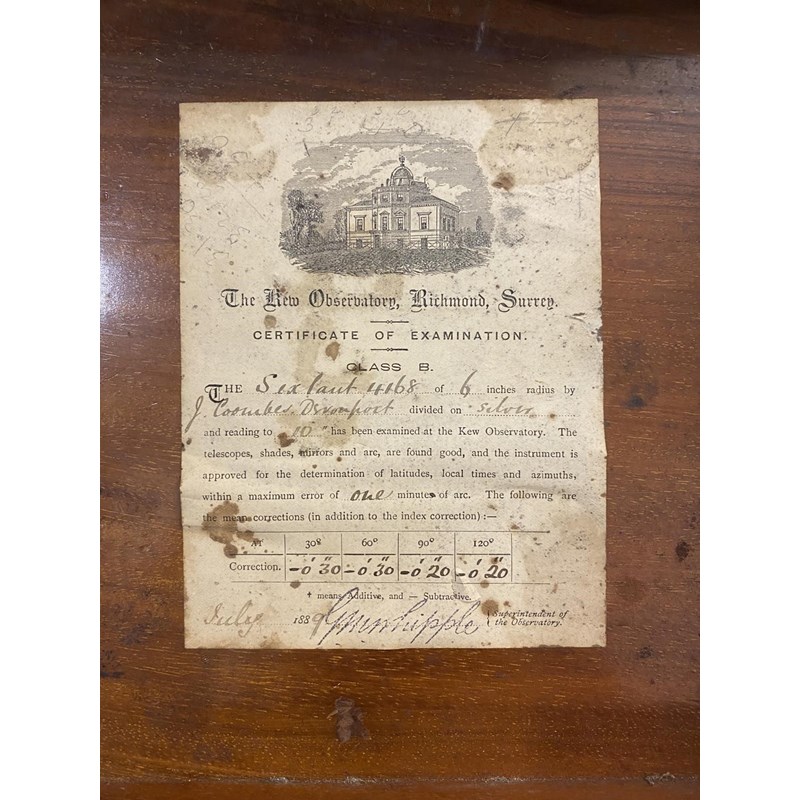 The Kew Observatory, Richmond, Surrey.
CERTIFICATE OF EXAMINATION.
CLASS B.
THE Sextant 4168 of 6 inches radius by
J. Coombes Devonport divided on silver
and reading to 10" has been examined at the Kew Observatory. The
telescopes, shades, mirrors and arc, are found good, and the instrument is
approved for the determination of latitudes, local times and azimuths,
within a maximum error of one minutes of arc. The following are
the mean corrections (in addition to the index correction) :—
AT 30° 60° 90° 120°
Correction. -0' 30" -0' 30" -0' 20" -0' 20"
+ means Additive, and — Subtractive.
July 1889 G M Whipple { Superintendent of
the Observatory.